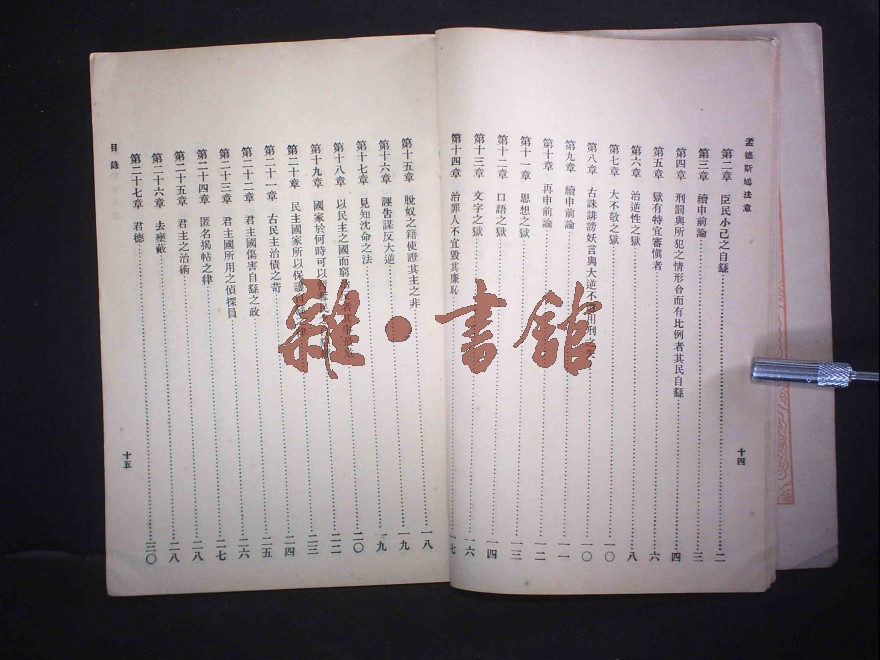 孟德斯鳩法意
第二章 臣民小己之自繇 二
第三章 續申前論 三
第四章 刑罰與所犯之情形合而有比例者其民自繇 四
第五章 獄有特宜審愼者 六
第六章 治逆性之獄 八
第七章 大不敬之獄 一〇
第八章 古誅誹謗妖言與大逆不 用刑 一〇
第九章 續申前論 一一
第十章 再申前論 一二
第十一章 思想之獄 一三
第十二章 口語之獄 一四
第十三章 文字之獄 一六
第十四章 治罪人不宜毀其廉恥 一七
十四
第十五章 脫奴之籍使證其主之非 一八
第十六章 誣告謀反大逆 一九
第十七章 見知沈命之法 二〇
第十八章 以民主之國而窮 二二
第十九章 國家於何時可以 二三
第二十章 民主國家所以保護 二四
第二十一章 古民主治債之苛 二五
第二十二章 君主國傷害自繇之政 二六
第二十三章 君主國所用之偵探員 二七
第二十四章 匿名揭帖之律 二八
第二十五章 君主之治術 二八
第二十六章 去壅蔽
第二十七章 君德 三〇
目錄
十五
雜·書館